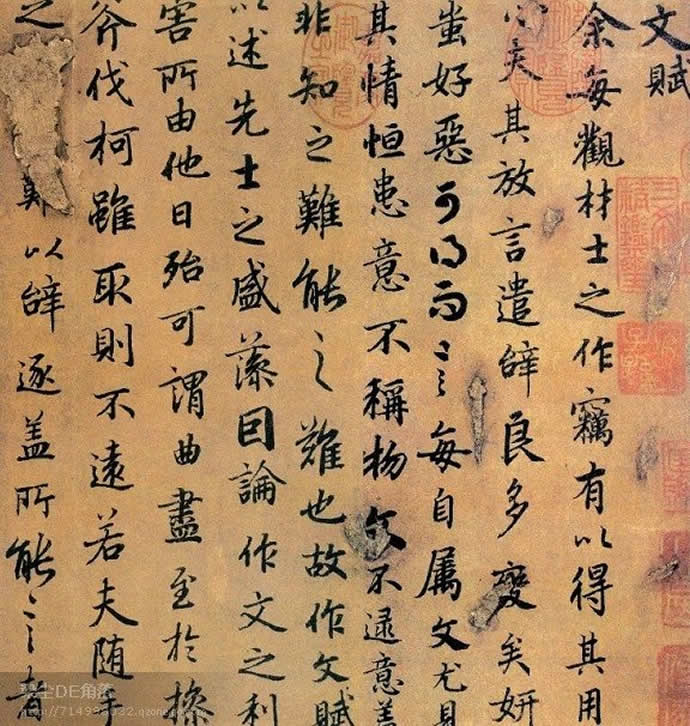 文賦
余每觀材士之作竊有以得其用
心夫其放言遣辭良多變矣妍
蚩好惡可得而言每自属文尤見
其情恒患意不稱物文不逮意盖
非知之難能之難也故作文賦
以述先士之盛藻因論作文之利
害所由他日殆可謂曲盡至於操
斧伐柯雖取則不遠若夫随手
之難以辭逐盖所能言者
DE角落